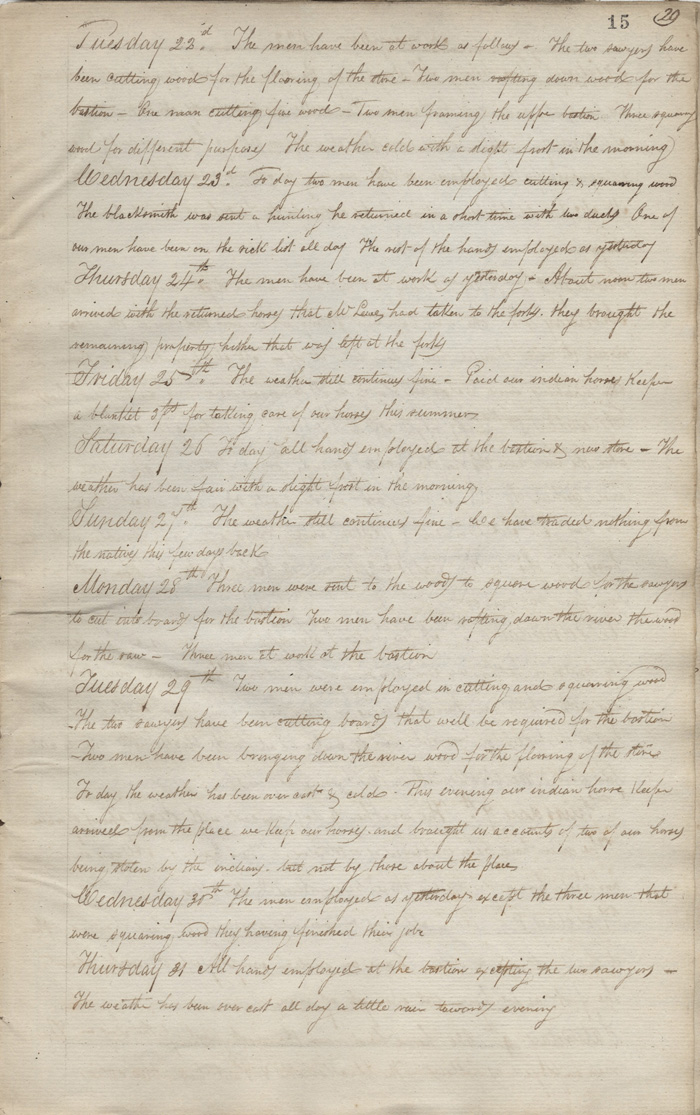 15 29
Tuesday 22d. The men have been at work as follows - The two sawyers have
been cutting wood for the flooring of the store - Two men rafting down wood for the
bastion - One man cutting fire wood - Two men framing the upper bastion Three squaring
wood for different purposes The weather cold with a slight frost in the morning
Wednesday 23d. To day two men have been employed cutting & squaring wood
The blacksmith was sent a hunting he returned in a short time with two ducks One of
our men have been on the sick list all day The rest of the hands employed as yesterday
Thursday 24th. The men have been at work as yesterday - About noon two men
arrived with the returned horses that Mr had taken to the forks. they brought the
remaining property hither that was left at the forks
Friday 25th. The weather still continues fine - Paid our indian horse Keeper
a blanket for taking care of our horses this summer
Saturday 26 To day all hands employed at the bastion & new store - The
weather has been fair with a slight frost in the morning
Sunday 27th. The weather still continues fine - We have traded nothing from
the natives this few days back
Monday 28th Three men were sent to the woods to square wood for the sawyers
to cut into boards for the bastion Two men have been rafting down the river the wood
for the saw - Three men at work at the bastion
Tuesday 29th Two men were employed in cutting and squaring wood
The two sawyers have been cutting boards that will be required for the bastion
- Two men have been bringing down the river wood for the flooring of the store
To day the weather has been over cast & cold - This evening our indian horse Keeper
arrived from the place we Keep our horses. and brought us accounts of two of our horses
being stolen by the indians. but not by those about the place
Wednesday 30th The men employed as yesterday except the three men that
were squaring wood they having finished their jobe
Thursday 31 All hands employed at the bastion excepting the two sawyers -
The weather has been over cast all day a little rain towards evening